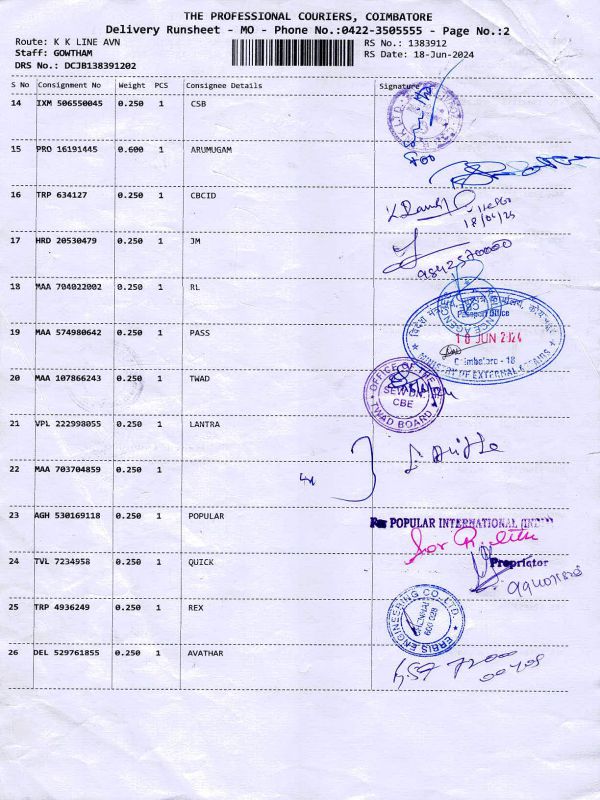 THE PROFESSIONAL COURIERS, COIMBATORE
Delivery Runsheet - MO - Phone No.:0422-3505555 - Page No.:2
Route: K K LINE AVN
RS No.: 1383912
Staff: GOWTHAM
RS Date: 18-Jun-2024
DRS No.: DCJB138391202
S No Consignment No Weight PCS Consignee Details Signature
14 IXM 506550045 0.250 1 CSB
15 PRO 16191445 0.600 1 ARUMUGAM
16 TRP 634127 0.250 1 CBCID
17 HRD 20530479 0.250 1 JM
18 MAA 704022002 0.250 1 RL
Passport Office
19 MAA 574980642 0.250 1 PASS
18 JUN 2024
Coimbatore - 18
MINISTRY OF EXTERNAL AFFAIRS
20 MAA 107866243 0.250 1 TWAD
OFFICE OF THE
SEW DN.
CBE
TWAD BOARD
21 VPL 222998055 0.250 1 LANTRA
22 MAA 703704859 0.250 1
23 AGH 530169118 0.250 1 POPULAR
For POPULAR INTERNATIONAL
24 TVL 7234958 0.250 1 QUICK
Proprietor
25 TRP 4936249 0.250 1 REX
ERBIS ENGINEERING CO. LTD.
26 DEL 529761855 0.250 1 AVATHAR